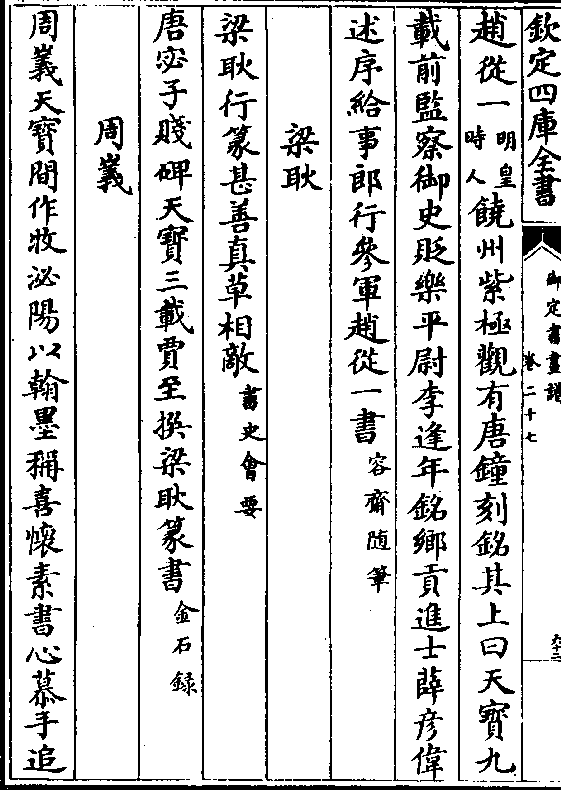 欽定四庫全書
御定書畫譜
卷二十七
趙從一明皇時人饒州紫極觀有唐鐘刻銘其上曰天寶九
載前監察御史貶樂平尉李逢年銘鄉貢進士薛彦偉
述序給事郎行參軍趙從一書容齋随筆
梁耿
梁耿行篆甚善真草相敵書史會要
唐宓子賤碑天寶三載賈至撰梁耿篆書金石録
周嶬
周嶬天寶間作牧泌陽以翰墨稱喜懷素書心慕手追